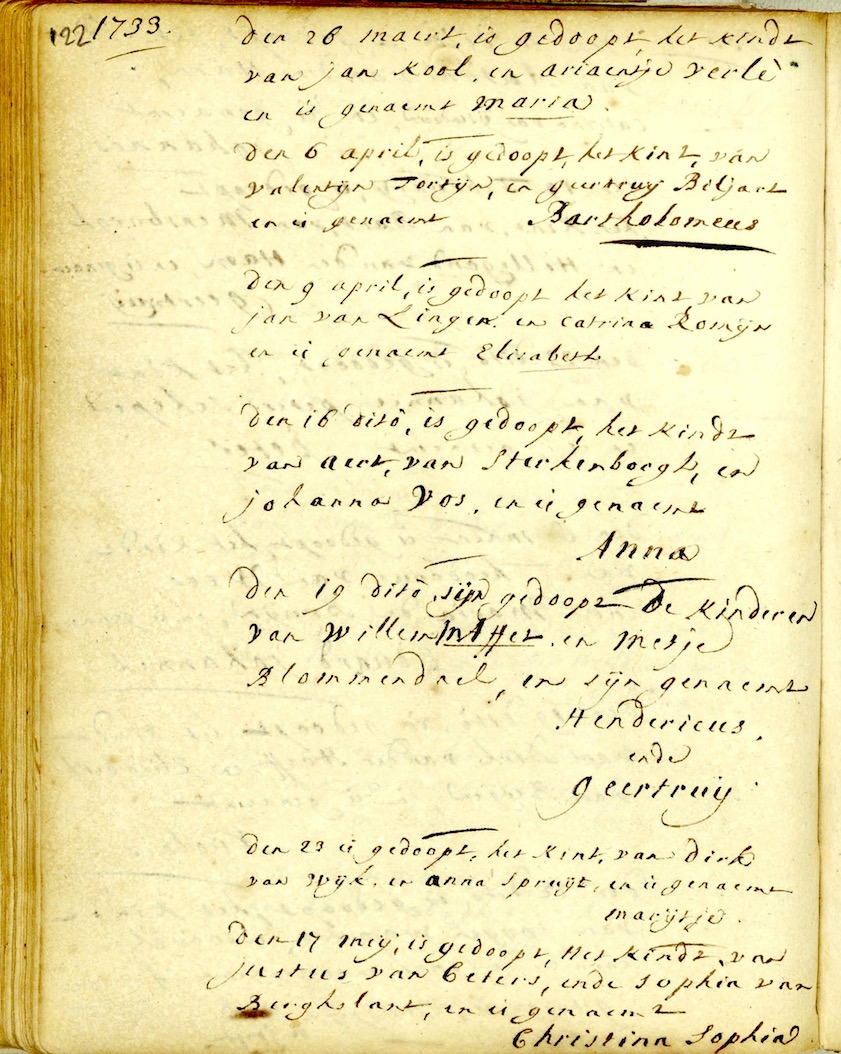 122 1733.
Den 26 maert, is gedoopt, het kindt
van jan Kool, en ariaentje verlè
en is genaemt maria.
Den 6 april, is gedoopt, het kint, van
valentijn Tortijn, en geertruy Biljart
en is genaemt Bartholomeus
Den 9 april, is gedoopt het kint van
jan van Lingen. en Catrina Romijn
en is genaemt Elisabeth
Den 16 ditô, is gedoopt, het kindt
van aert, van Sterkenborgh, en
johanna Vos, en is genaemt
Anna
Den 19 ditô, sijn gedoopt De kinderen
van Willem en Metje
Blommendael, en sijn genaemt
Hendericus,
ende
geertruy
Den 23 is gedoopt, het kint, van Dirk
van Wijk. en anna Spruijt, en is genaemt
marijtje.
Den 17 meij, is gedoopt, Het kindt, van
justus van Ceters, ende Sophia van
Berghslant, en is genaemt
Christina Sophia